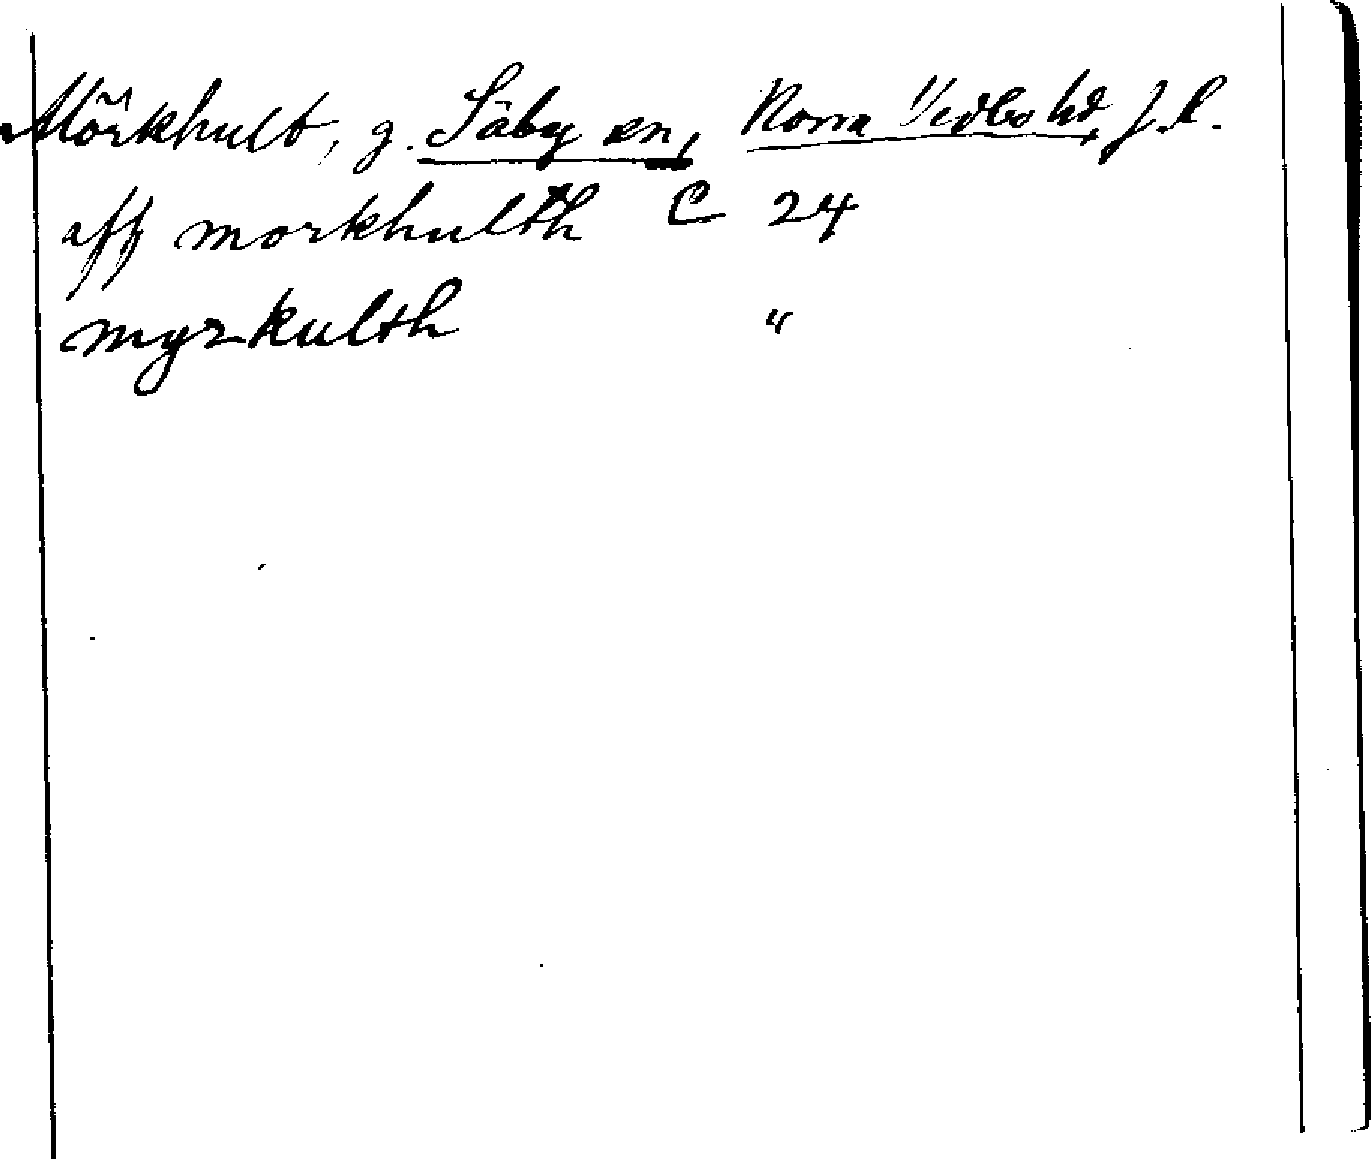 Mörkhult, g. Säby sn, Norra Vedbo hd, J. l.
aff morkhulth C 24
myrkulth "